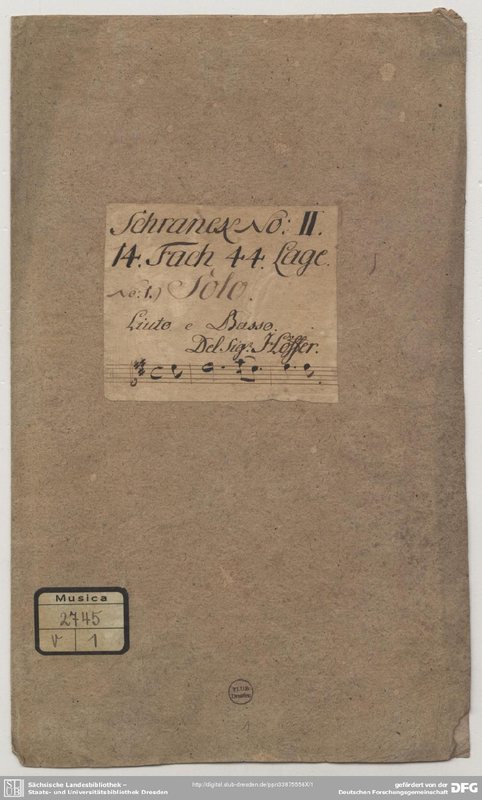 Schranck No: II.
14. Fach 44. Lage.
No: 1.) Solo.
Liuto e Basso.
Del Sig.r Höffer.
Musica
2745
V 1
Sächsische Landesbibliothek –
Staats- und Universitätsbibliothek Dresden
http://digital.slub-dresden.de/ppn03875554X/1
gefördert von der
Deutschen Forschungsgemeinschaft
DFG